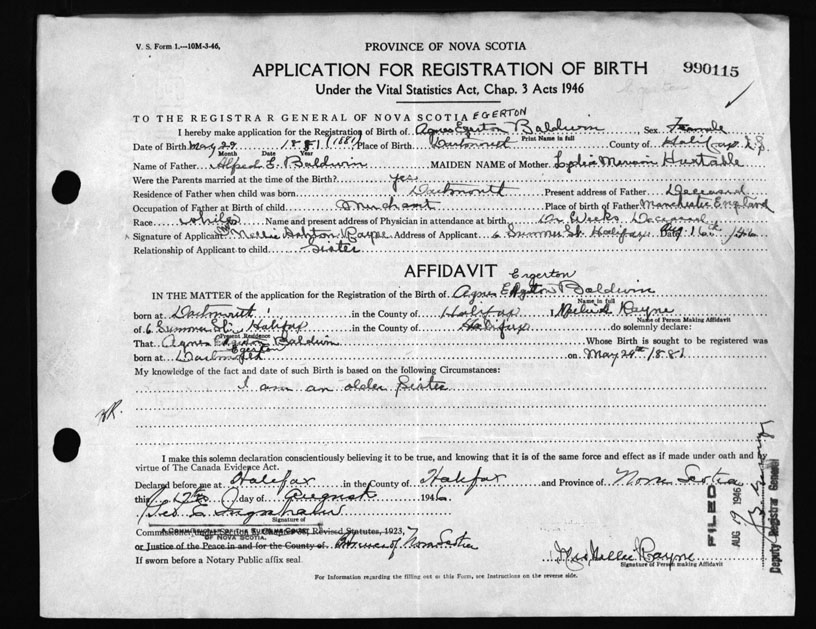 V. S. Form 1.—10M-3-46,
PROVINCE OF NOVA SCOTIA
APPLICATION FOR REGISTRATION OF BIRTH
990115
Under the Vital Statistics Act, Chap. 3 Acts 1946
TO THE REGISTRAR GENERAL OF NOVA SCOTIA EGERTON
I hereby make application for the Registration of Birth of Agnes Egerton Baldwin Sex Female
Print Name in full
Date of Birth May 29 1881 (1881) Place of Birth Dartmouth County of Halifax
Month Date Year
Name of Father Alfred E. Baldwin MAIDEN NAME of Mother Lydia Huxtable
Were the Parents married at the time of the Birth? yes
Residence of Father when child was born Dartmouth Present address of Father Deceased
Occupation of Father at Birth of child Merchant Place of birth of Father Manchester England
Race white Name and present address of Physician in attendance at birth Dr Weeks Deceased
Signature of Applicant Nellie Payne Address of Applicant 6 Summer St. Halifax Date Aug 16th /46
Relationship of Applicant to child Sister
AFFIDAVIT Egerton
IN THE MATTER of the application for the Registration of the Birth of Agnes Baldwin
Name in full
born at Dartmouth in the County of Halifax I Payne
Name of Person Making Affidavit
of 6 Summer St. Halifax in the County of Halifax do solemnly declare:
Present Residence
That Agnes Egerton Baldwin Whose Birth is sought to be registered was
Egerton
born at Dartmouth on May 29th 1881
My knowledge of the fact and date of such Birth is based on the following Circumstances:
I am an older Sister
I make this solemn declaration conscientiously believing it to be true, and knowing that it is of the same force and effect as if made under oath and by
virtue of The Canada Evidence Act.
Declared before me at Halifax in the County of Halifax and Province of Nova Scotia
this 17th day of August 1946
Signature of
A COMMISSIONER OF THE SUPREME COURT
OF NOVA SCOTIA.
Revised Statutes, 1923,
or Justice of the Peace in and for the County of Province of Nova Scotia
If sworn before a Notary Public affix seal
Mrs Nellie Payne
Signature of Person making Affidavit
FILED
AUG 19 1946
Deputy Registrar General
For Information regarding the filling out of this Form, see Instructions on the reverse side.